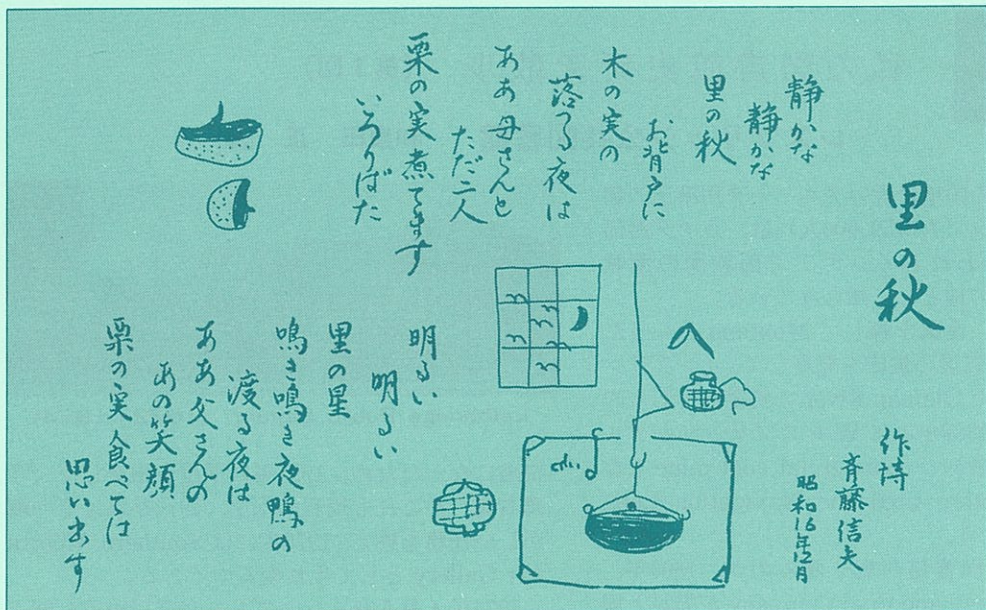 里の秋
作詩
斉藤信夫
昭和16年12月
静かな
静かな
里の秋
お背戸に
木の実の
落つる夜は
ああ母さんと
ただ二人
栗の実煮てます
いろりばた
明るい
明るい
里の星
鳴き鳴き夜鴨の
渡る夜は
ああ父さんの
あの笑顔
栗の実食べては
思い出す